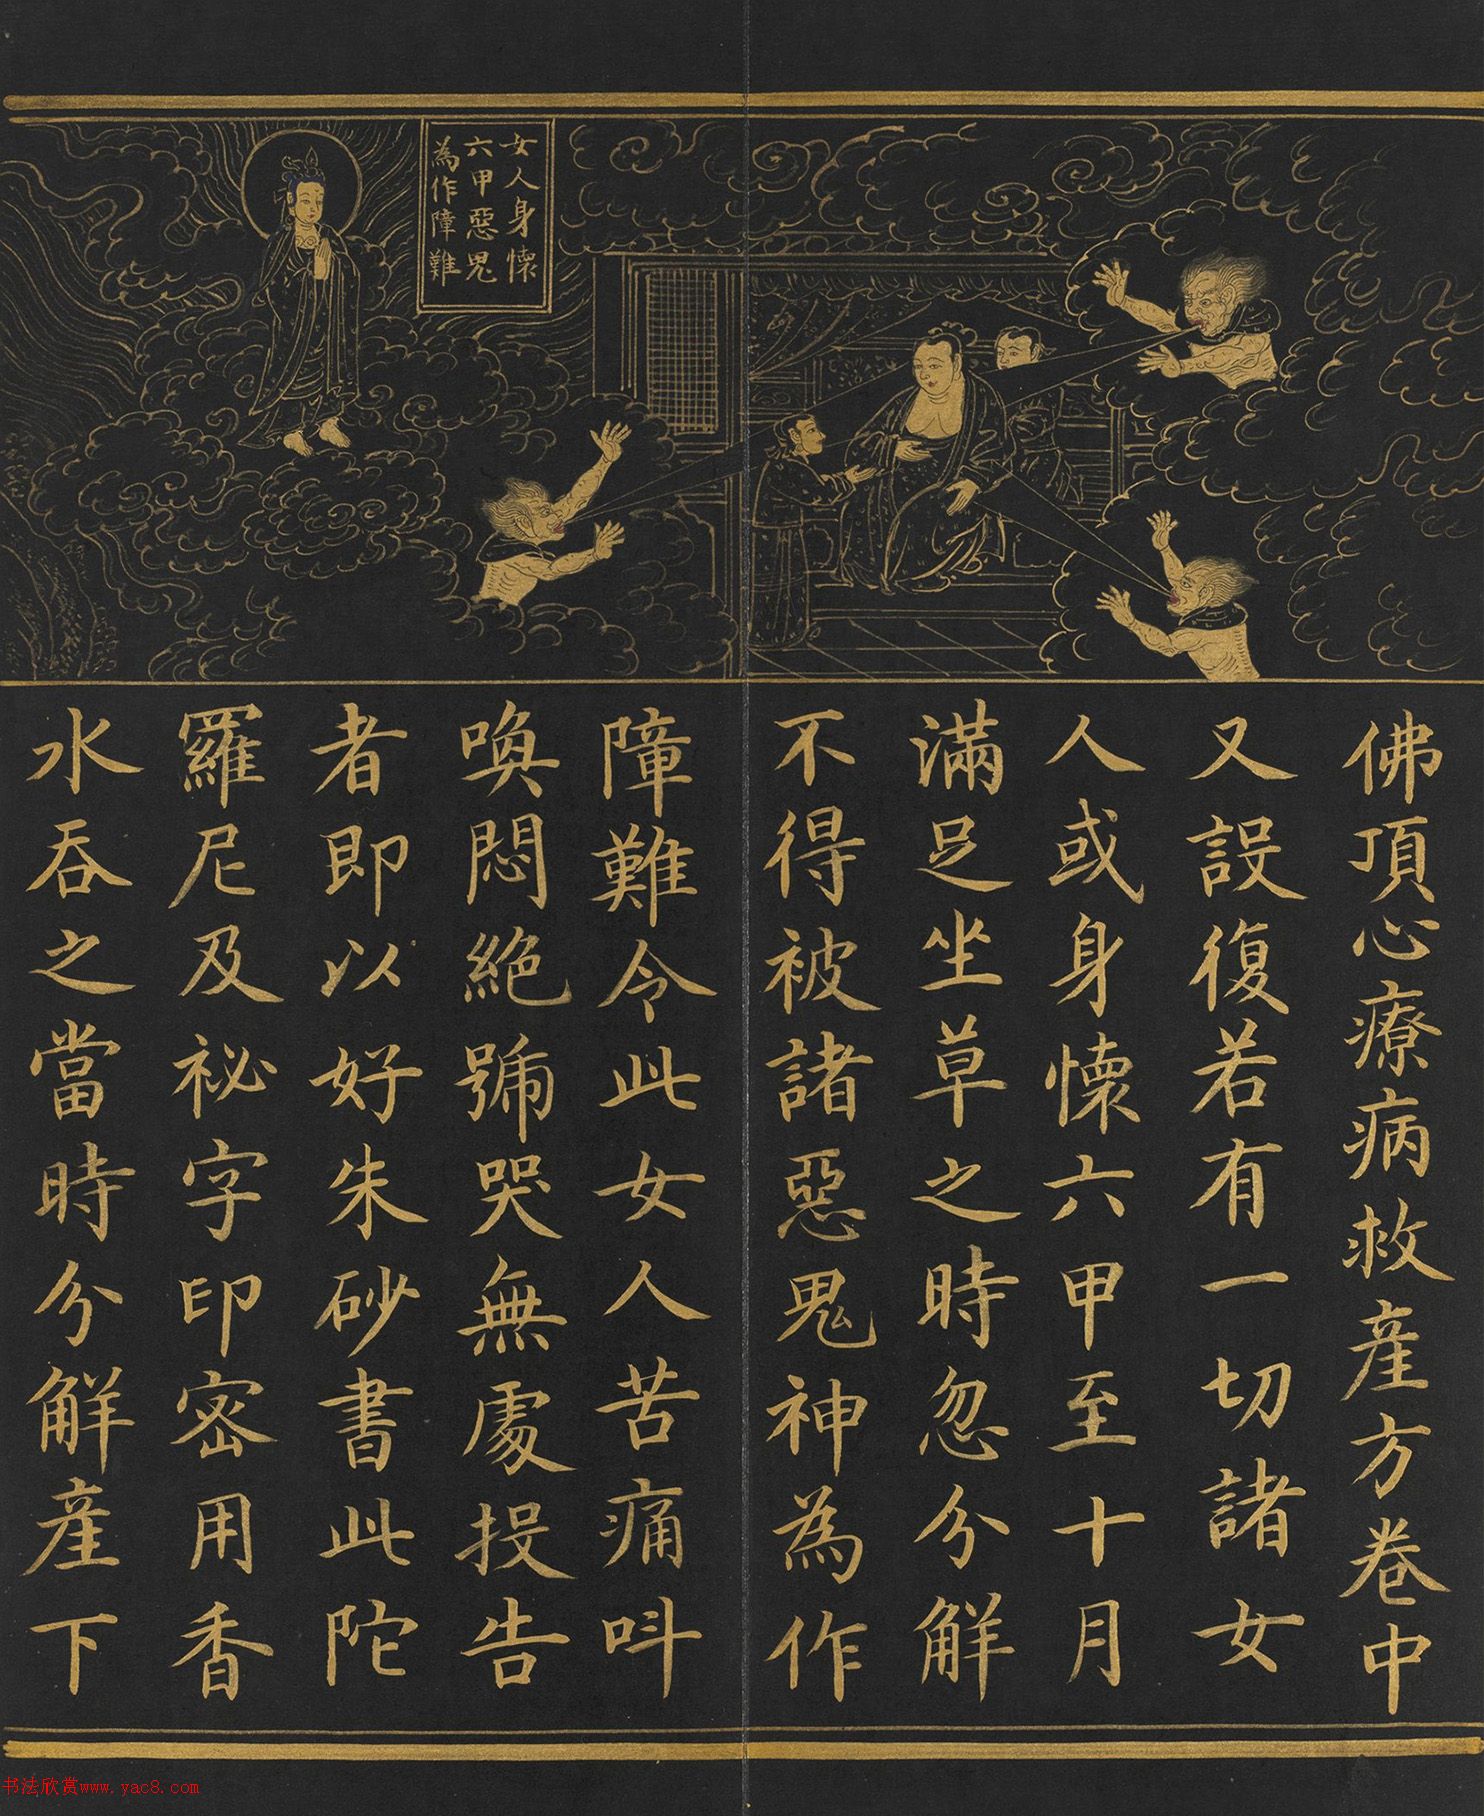 女人身懷
六甲惡鬼
為作障難
佛頂心療病救産方卷中
又設復若有一切諸女
人或身懷六甲至十月
滿足坐草之時忽分觧
不得被諸惡鬼神為作
障難令此女人苦痛呌
喚悶絶號哭無處投告
者即以好朱砂書此陀
羅尼及祕字印密用香
水吞之當時分觧産下
书法欣赏www.yac8.com